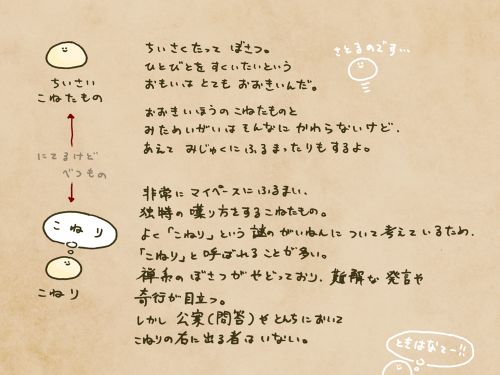 ちいさくたって ぼさつ。
ひとびとを すくいたいという
おもいは とても おおきいんだ。
さとるのです…
ちいさい
こねたもの
おおきいほうの こねたものと
みためいがいは そんなに かわらないけど、
あえて みじゅくに ふるまったりもするよ。
にてるけど
べつもの
非常に マイペースに ふるまい、
独特の 喋り方をする こねたもの。
よく「こねり」という 謎の がいねんに ついて 考えているため、
「こねり」と 呼ばれることが 多い。
禅系の ぼさつが やどっており、難解な 発言や
奇行が 目立つ。
しかし 公案(問答)や とんちにおいて
こねりの 右に 出る 者は いない。
こねり
こねり
ときはなて―!!